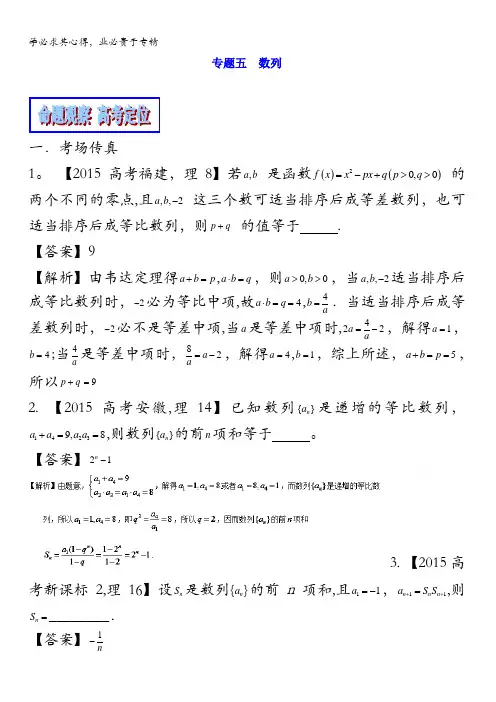 学必求其心得，业必贵于专精
专题五 数列
命题观察 高考定位
一．考场传真
1。 【2015 高考福建，理 8】若 a,b 是函数 f(x)=x²-px+q(p>0,q>0) 的
两个不同的零点,且 a,b,-2 这三个数可适当排序后成等差数列，也可
适当排序后成等比数列，则 p+q 的值等于______.
【答案】9
【解析】由韦达定理得 a+b=p,a·b=q，则 a>0,b>0，当 a,b,-2 适当排序后
成等比数列时，-2 必为等比中项,故 a·b=q=4,b=4/a．当适当排序后成等
差数列时，-2 必不是等差中项,当 a 是等差中项时,2a=4/a-2，解得 a=1，
b=4;当 4/a 是等差中项时，8/a=a-2，解得 a=4,b=1，综上所述，a+b=p=5，
所以 p+q=9
2. 【2015 高考安徽,理 14】已知数列{aₙ}是递增的等比数列，
a₁+a₄=9,a₂a₃=8,则数列{aₙ}的前 n 项和等于______。
【答案】2ⁿ-1
【解析】由题意，{a₁+a₄=9 a₂·a₃=a₁·a₄=8，解得 a₁=1,a₄=8或者 a₁=8,a₄=1，而数列{aₙ}是递增的等比数
列，所以 a₁=1,a₄=8，即 q³=a₄/a₁=8，所以 q=2，因而数列{aₙ}的前 n 项和
Sₙ=a₁(1-qⁿ)/(1-q)=(1-2ⁿ)/(1-2)=2ⁿ-1. 3.【2015 高
考新课标 2,理 16】设 Sₙ 是数列{aₙ}的前 n 项和,且 a₁=-1，aₙ₊₁=SₙSₙ₊₁,则
Sₙ=________．
【答案】-1/n